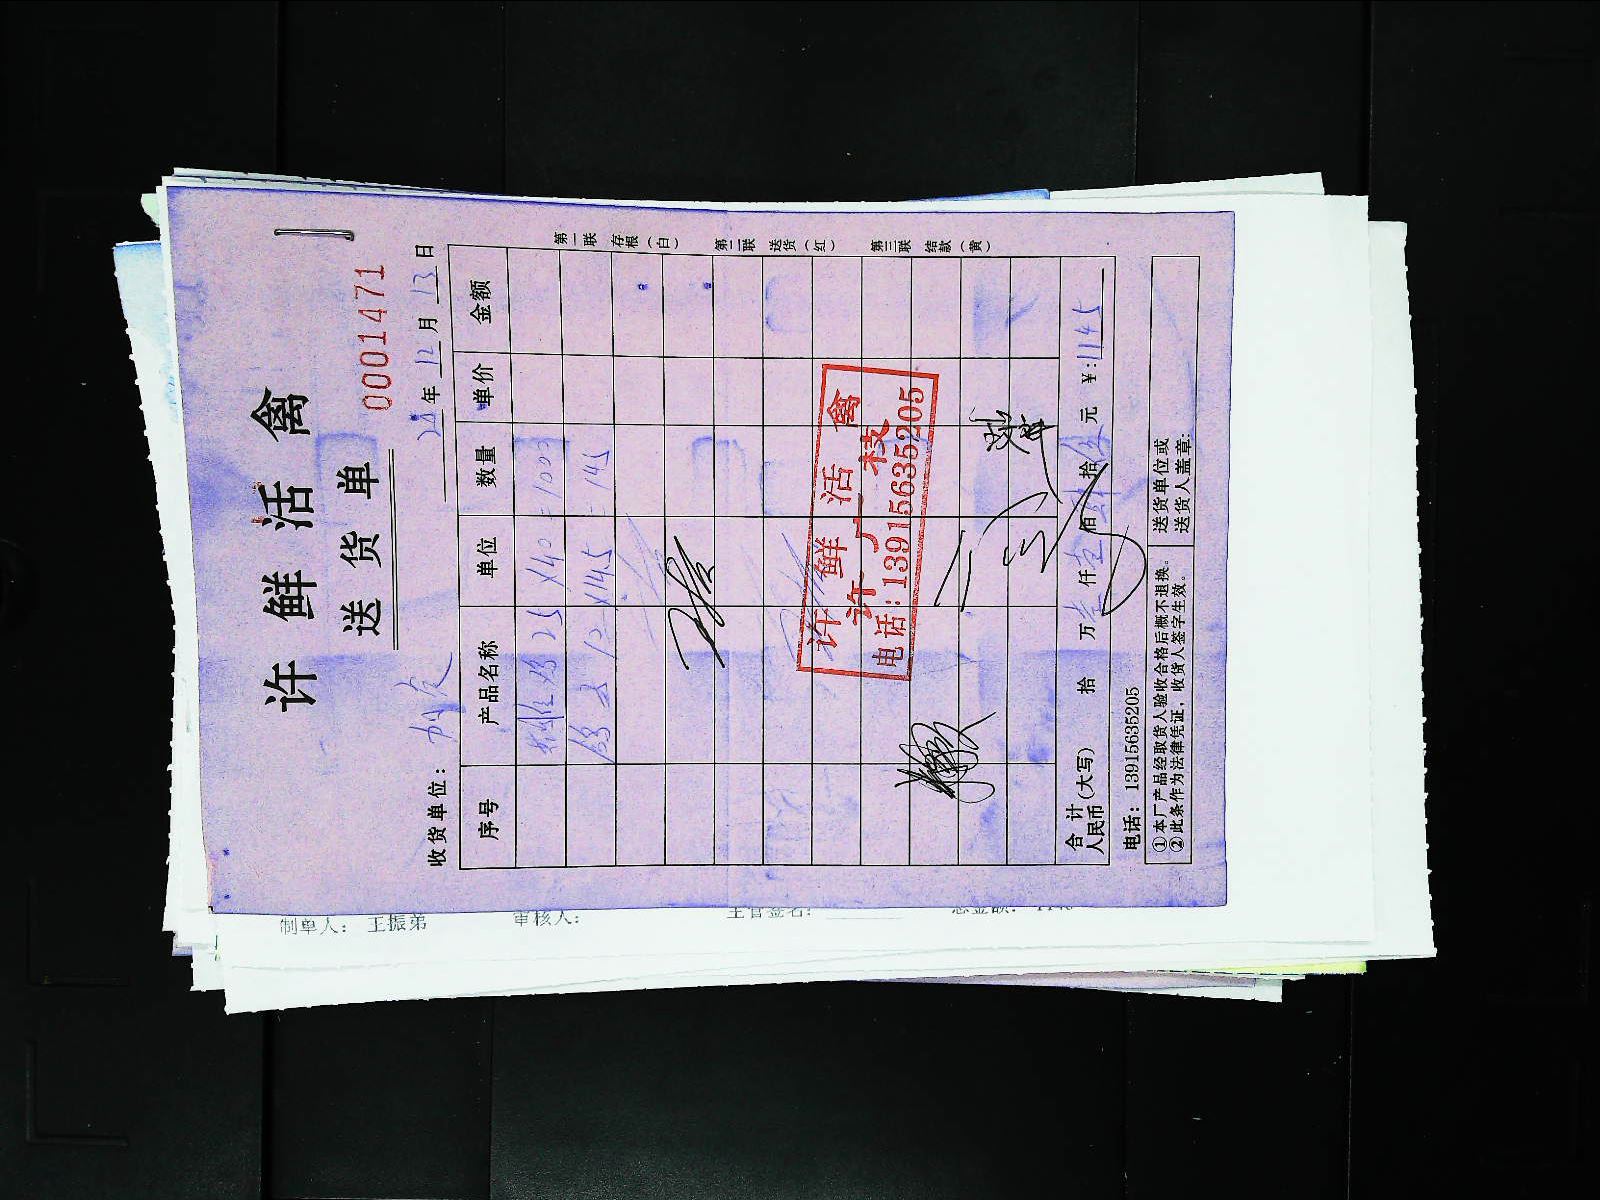 许鲜活禽
送货单
0001471
年 12 月 13 日
收货单位：
序号 产品名称 单位 数量 单价 金额
25 X40 = 1000
12 X145 = 145
许鲜活禽
许广枝
电话:13915635205
合计 人民币(大写) 拾 万 壹 仟 壹 佰 拾 元 ¥:1145
电话：13915635205
①本厂产品经取货人验收合格后概不退换。
②此条作为法律凭证，收货人签字生效。
送货单位或
送货人盖章:
第一联 存根（白） 第二联 送货（红） 第三联 结款（黄）
制单人： 王振弟 审核人: 主管签名: